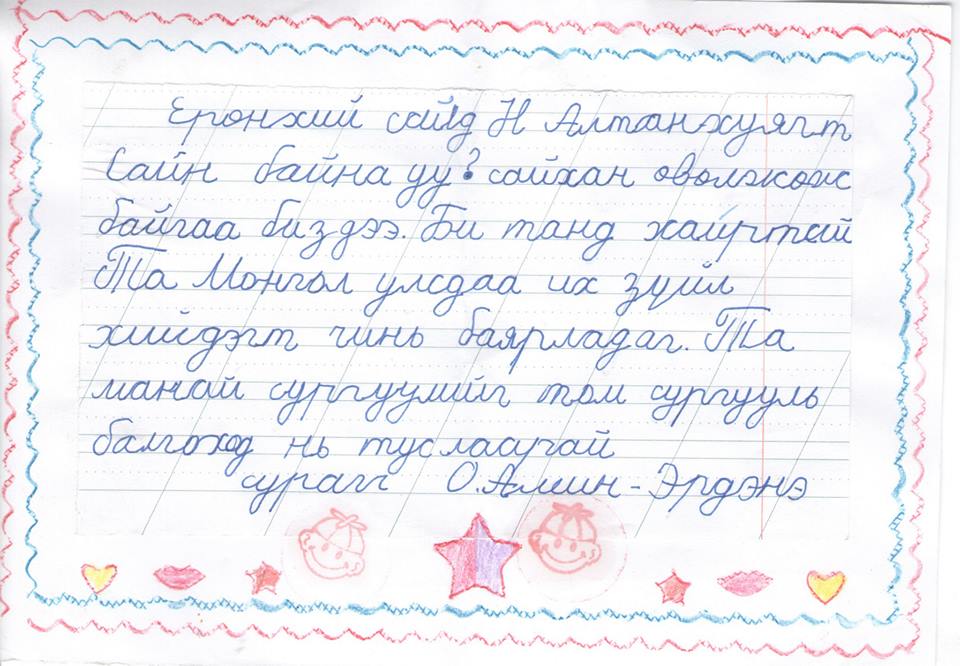 Ерөнхий сайд Н Алтанхуягт
Сайн байна уу? сайхан өвөлжөж
байгаа биздээ. Би танд хайртай
Та Монгол улсдаа их зүйл
хийдэгт чинь баярладаг. Та
манай сургуулийг том сургууль
балгоход нь туслаарчай
сурагч О.Амин-Эрдэнэ